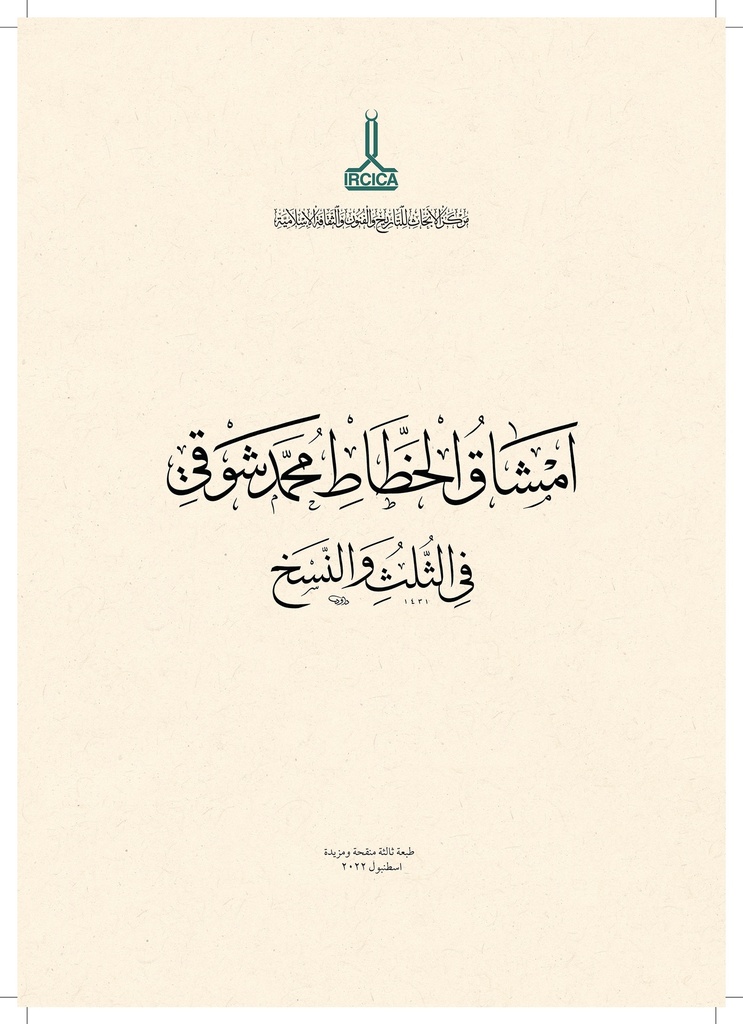 IRCICA
مركز الأبحاث للتاريخ والفنون والثقافة الإسلامية
امشاق الخطاط محمد شوقي
في الثلث والنسخ
١٤٣١ داود
طبعة ثالثة منقحة ومزيدة
اسطنبول ٢٠٢٢